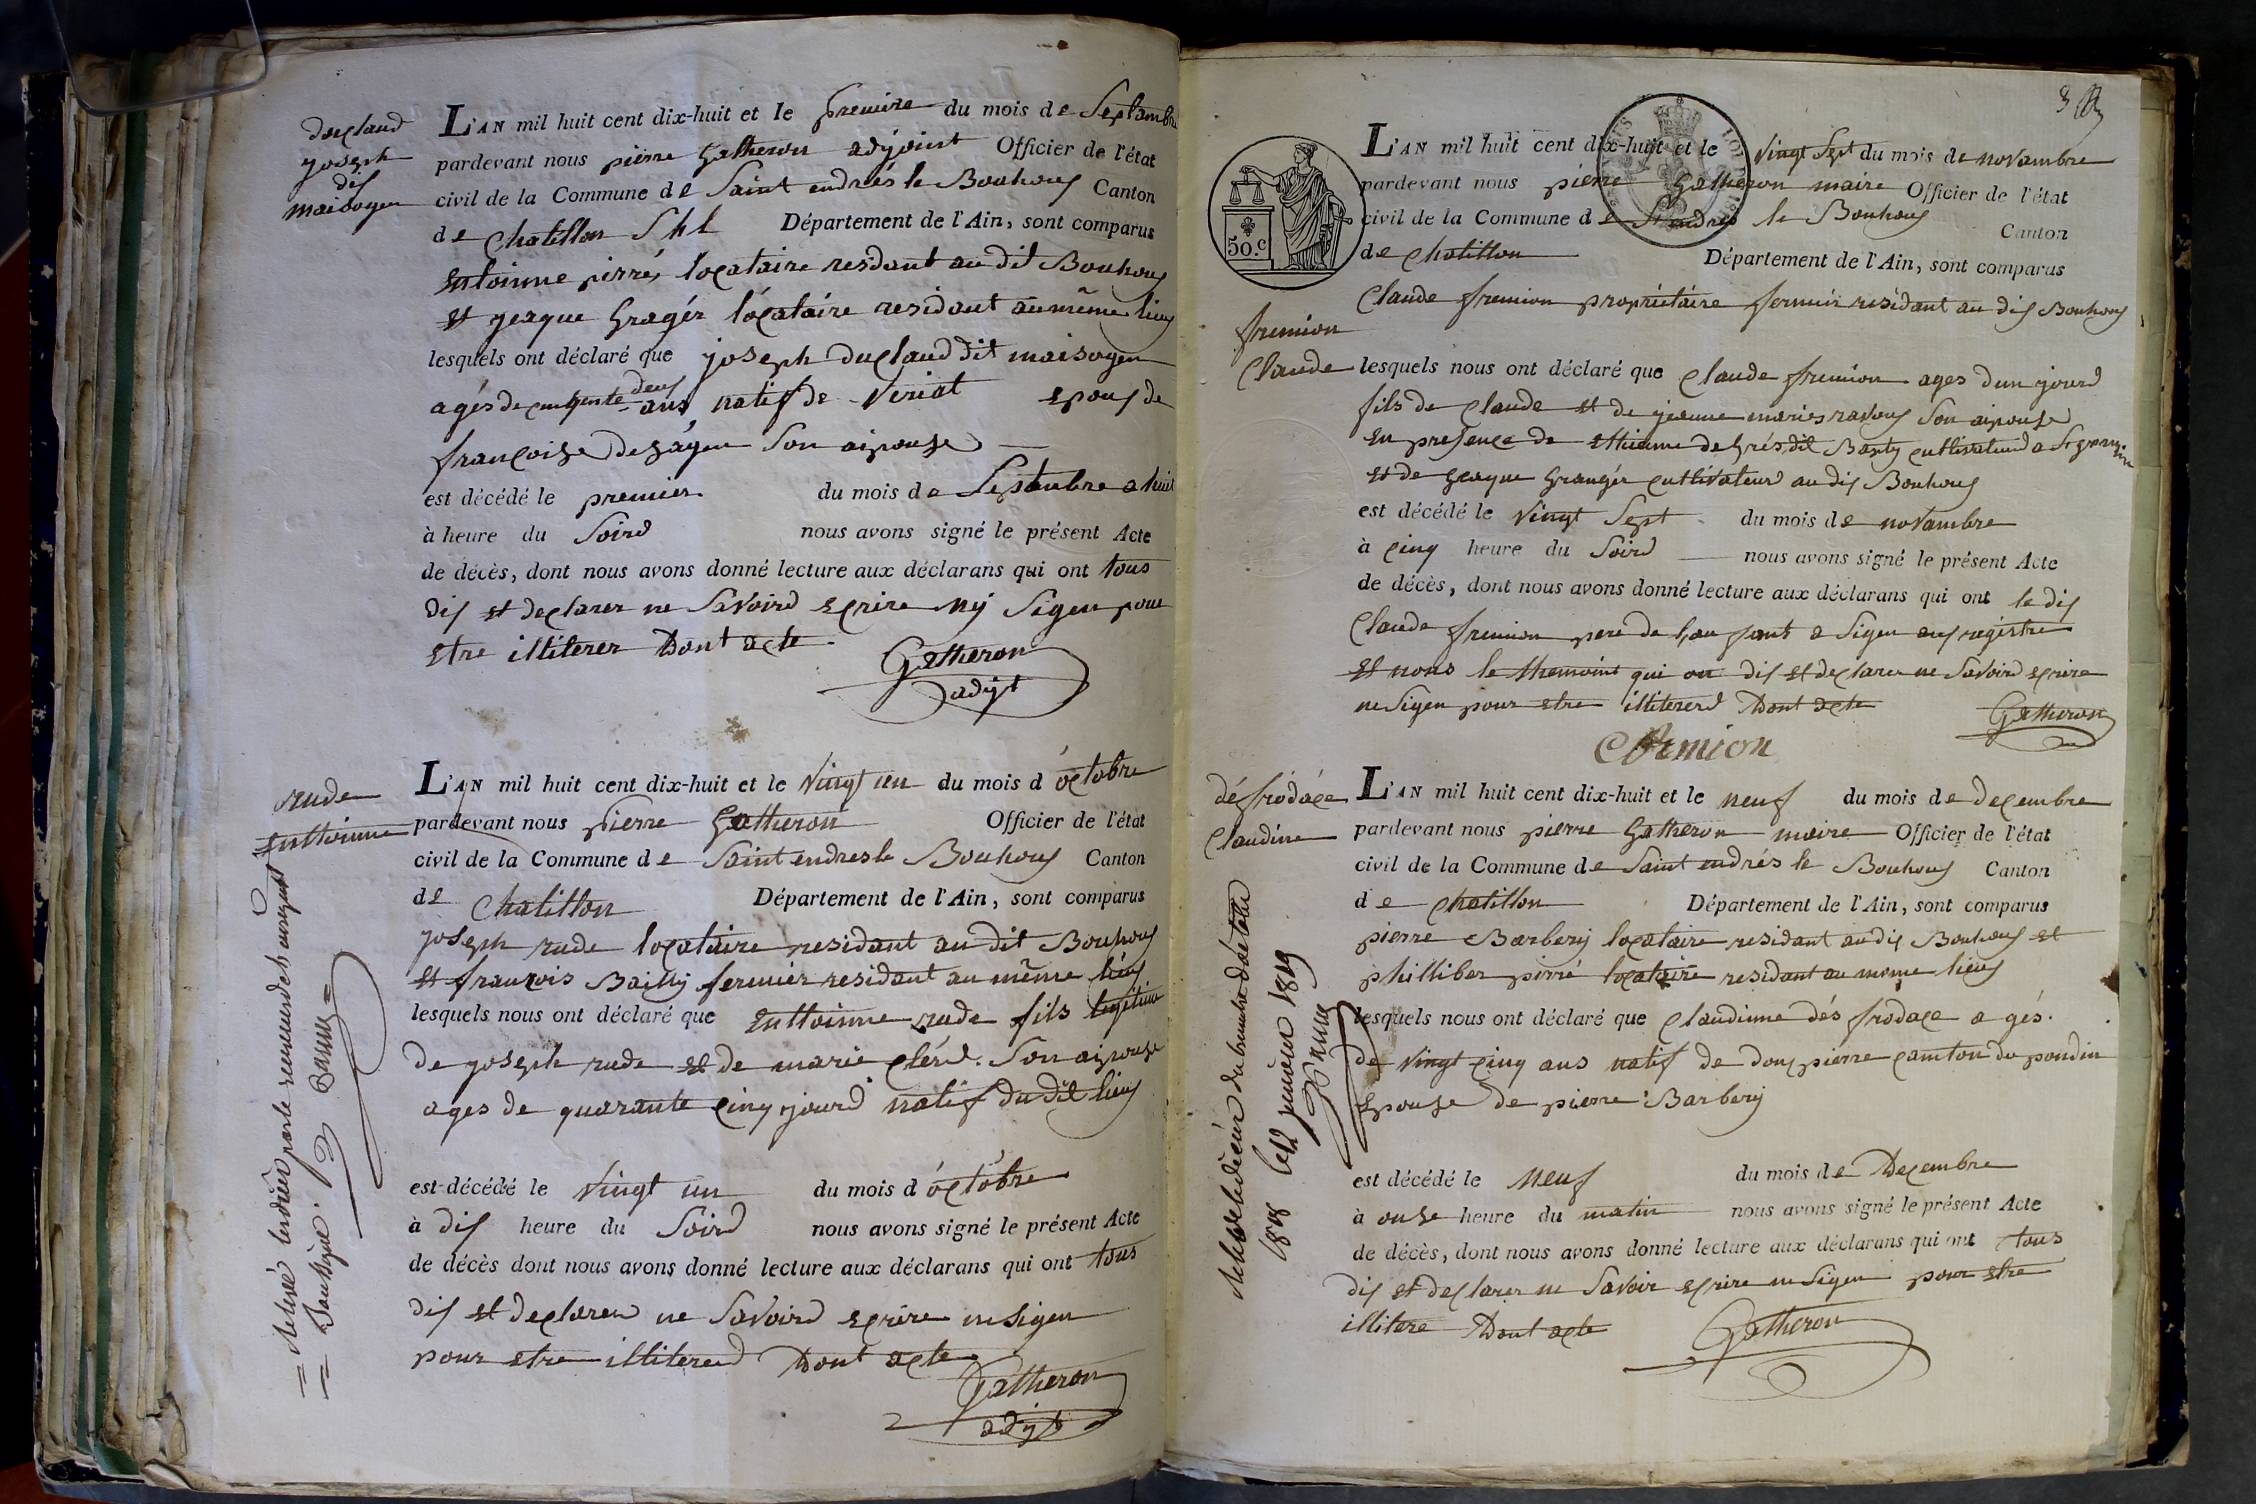 duclaud
joseph
dis
maisogen
L'AN mil huit cent dix-huit et le premire du mois de Septambre
pardevant nous pierre Gatheron adyoint Officier de l'état
civil de la Commune de Saint endrés le Bouhous Canton
de Chatillon S h L Département de l'Ain, sont comparus
entoinne pirré, locataire resdant au dit Bouhous
et yeaque Gragér locataire residant aumême lieu
lesquels ont déclaré que joseph duclaud dit maisogen
agés de cinqente deus ans natif de Viriat epous de
françoise desagen son aipouse
est décédé le premier du mois de Septenbre a huit
à heure du Soird nous avons signé le présent Acte
de décès, dont nous avons donné lecture aux déclarans qui ont tous
dis et declarer ne Savoird ecrire ny Sigen pour
etre illiterer Dont acte
Gatheron
adyt
rude
enttoinne
L'AN mil huit cent dix-huit et le vingt un du mois d'octobre
pardevant nous pierre Gatheron Officier de l'état
civil de la Commune de Saint endres le Bouhous Canton
de Chatillon Département de l'Ain, sont comparus
joseph rude locataire residant au dit Bouhous
et françois Bailly fermier residant au même lieus
lesquels nous ont déclaré que enttoinne rude fils legitime
de joseph rude et de marie clérd. Son aipouse
ages de quarante cinq jourd natif du dit lieus
est décédé le vingt un du mois d'octobre
à dis heure du Soird nous avons signé le présent Acte
de décès dont nous avons donné lecture aux déclarans qui ont tous
dis et declarer ne Savoird ecrire ni sigen
pour etre illiterend Dont acte
Gatheron
adyt
3
50.c
L'AN mil huit cent dix-huit et le vingt Sept du mois de novambre
pardevant nous pierre Gatheron maire Officier de l'état
civil de la Commune de St andres le Bouhous Canton
de Chatillon Département de l'Ain, sont comparus
Claude fremion propriétaire fermier residant au dis Bouhous
fremion
Claude
lesquels nous ont déclaré que Claude fremion ages dun jourd
fils de Claude et de jeanne marie ravous Son aipouse
en presence de ethienne de Grés dit Barty cultivateur a
et de yeaque Grangér cultivateur au dis Bouhous
est décédé le vingt Sept du mois de novambre
à cinq heure du Soird nous avons signé le présent Acte
de décès, dont nous avons donné lecture aux déclarans qui ont le dis
Claude fremion pere de fant a Sigen aus registre
et nous le themoint qui on dis et declarer ne Savoird ecrire
ne Sigen pour etre illitererd Dont acte
Gatheron
Cfremion
défrodáce
Claudine
L'AN mil huit cent dix-huit et le neuf du mois de decembre
pardevant nous pierre Gatheron moire Officier de l'état
civil de la Commune de Saint endrés le Bouhous Canton
de Chatillon Département de l'Ain, sont comparus
pierre Barbery locataire residant au dis Bouhous et
philliber pirré locataire residant au mome lieus
lesquels nous ont déclaré que Claudinne dés frodace a gés.
de vingt cinq ans natif de dons pierre camton du pondin
epouse de pierre Barbery
est décédé le neuf du mois de Decembre
à onse heure du matin nous avons signé le présent Acte
de décès, dont nous avons donné lecture aux déclarans qui ont tous
dis et declarer ne Savoir ecrire ni Sigen pour etre
illitere Dont acte
Gatheron
1818 le 12 janvier 1819